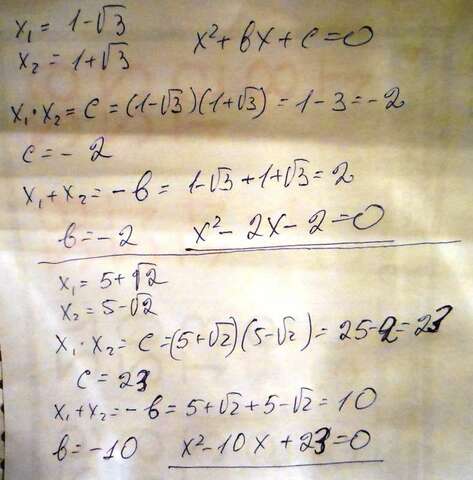 x₁ = 1-√3
x₂ = 1+√3
x²+bx+c=0
x₁·x₂ = c = (1-√3)(1+√3) = 1-3=-2
c = -2
x₁+x₂ = -b = 1-√3+1+√3=2
b = -2 x²-2x-2=0
x₁ = 5+√2
x₂ = 5-√2
x₁·x₂ = c = (5+√2)(5-√2) = 25-2=23
c = 23
x₁+x₂ = -b = 5+√2+5-√2=10
b = -10 x²-10x+23=0